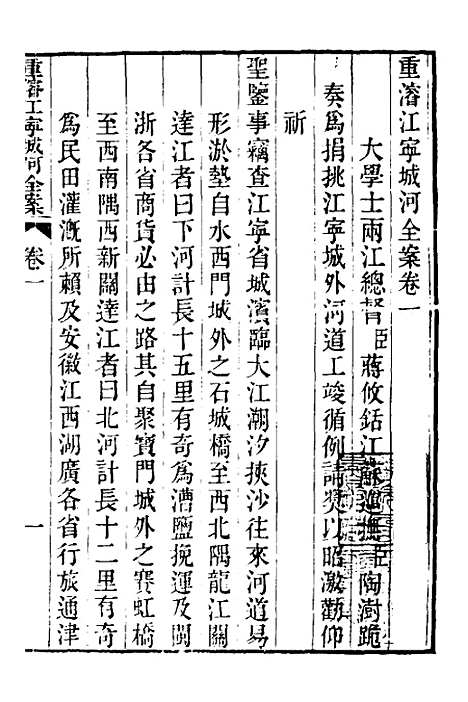 重濬江寧城河全案卷一
大學士兩江總督臣蔣攸銛江蘇巡撫臣陶澍跪
奏爲捐挑江寧城外河道工竣循例請奬以昭激勸仰
祈
聖鑒事竊查江寧省城濱臨大江潮汐挾沙往來河道易
形淤墊自水西門城外之石城橋至西北隅龍江關
達江者曰下河計長十五里有奇爲漕鹽挽運及閩
浙各省商貨必由之路其自聚寶門城外之賽虹橋
至西南隅西新關達江者曰北河計長十二里有奇
爲民田灌溉所賴及安徽江西湖廣各省行旅通津
重濬江寧城河全案
卷一
一